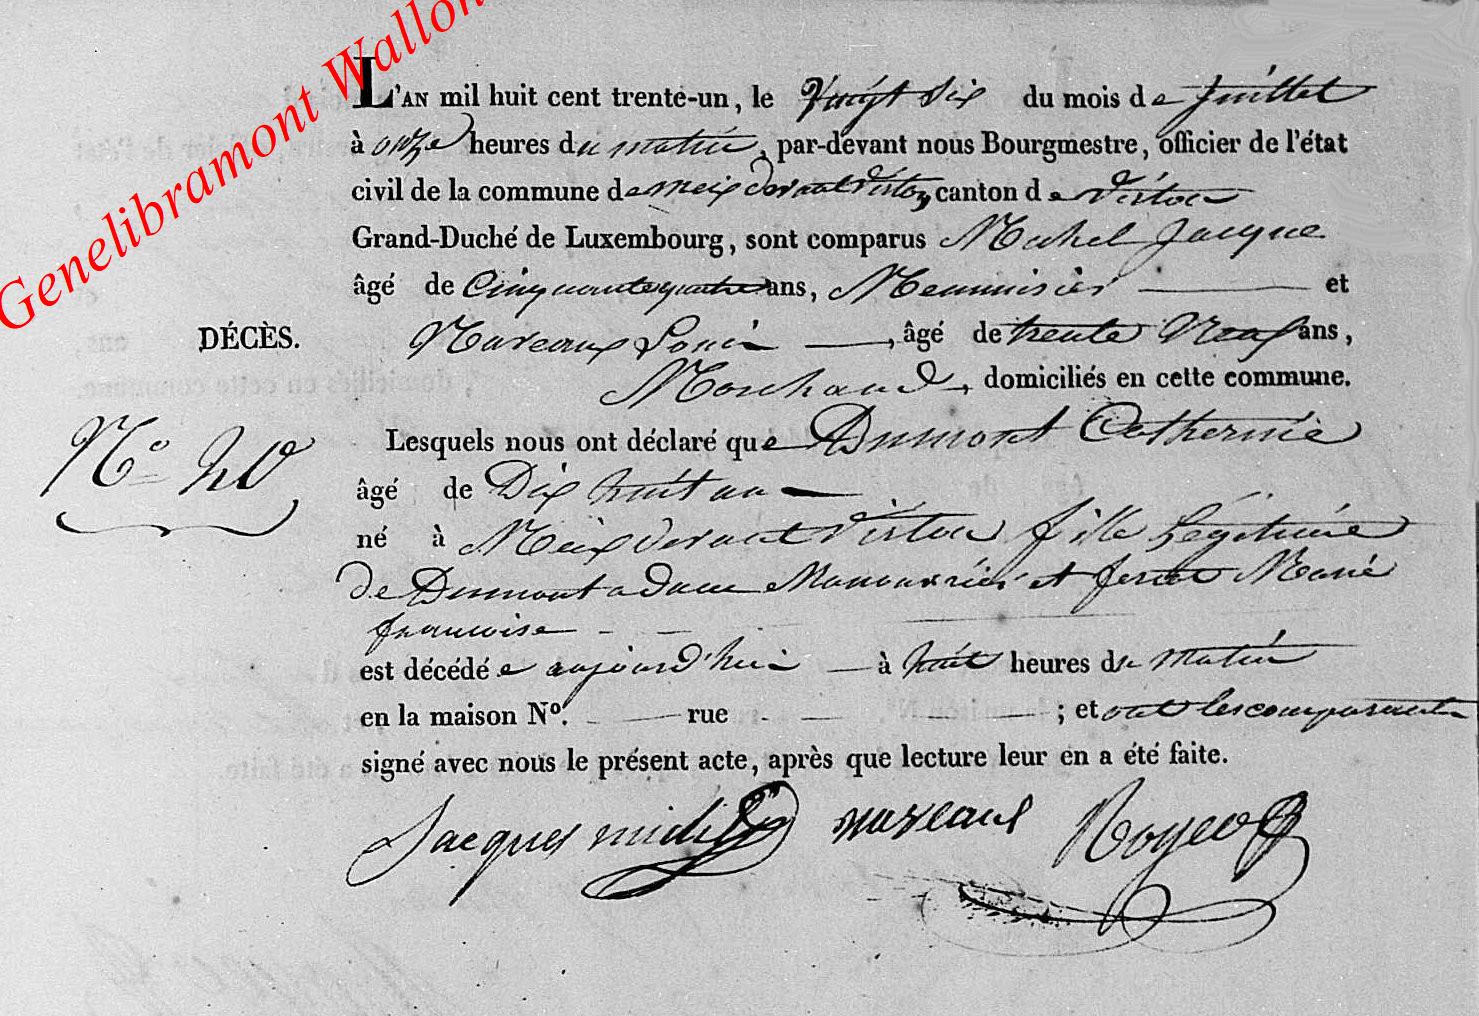 Genelibramont Wallon
L'AN mil huit cent trente-un, le Vingt Six du mois de Juillet
à onze heures du matin, par-devant nous Bourgmestre, officier de l'état
civil de la commune de Meix devant Virton, canton de Virton
Grand-Duché de Luxembourg, sont comparus Michel Jacque
âgé de Cinquante quatre ans, Menuisier et
DÉCÈS.
Nareaux Louis, âgé de trente Neuf ans,
Marchand, domiciliés en cette commune.
N° 20
Lesquels nous ont déclaré que Dumont Catherine
âgé de Dix huit an
né à Meix devant Virton fille Légitime
de Dumont adam Manouvrier et Marie
francoise
est décédée aujourd'hui à huit heures du matin
en la maison N°. rue ; et ont les comparants
signé avec nous le présent acte, après que lecture leur en a été faite.
Jacques nareaux